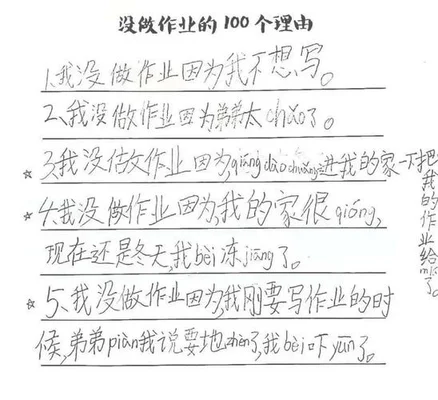 没做作业的100个理由
1.我没做作业因为我不想写。
2.我没做作业因为弟弟太chǎo了。
3.我没做作业因为,qiáng dào chuǎng进我的家一下把
我的作业给
了。
4.我没做作业因为,我的家很qióng,
现在还是冬天,我bèi冻jiāng了。
5.我没做作业因为,我刚要写作业的时
候,弟弟piàn我说要地zhèn了,我bèi吓yūn了。